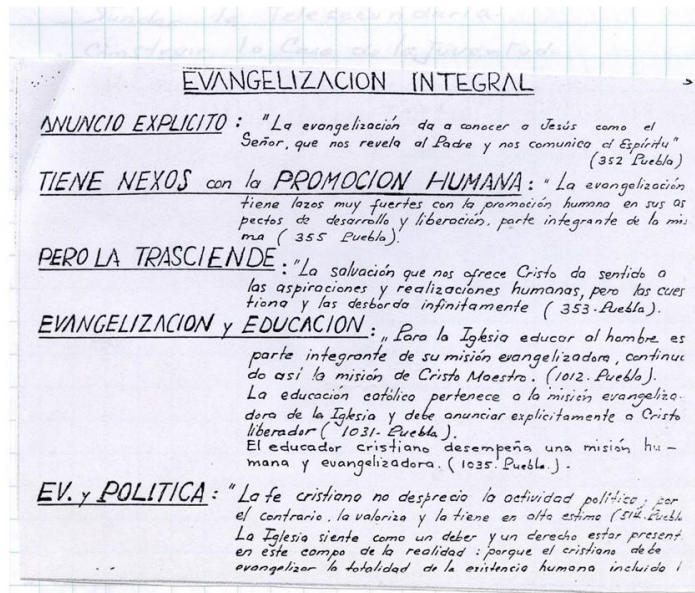 Construir la Casa de la Juventud.
EVANGELIZACION INTEGRAL
ANUNCIO EXPLICITO : "La evangelización da a conocer a Jesús como el
Señor, que nos revela al Padre y nos comunica el Espíritu"
(352 Puebla)
TIENE NEXOS con la PROMOCION HUMANA : "La evangelización
tiene lazos muy fuertes con la promoción humana en sus as
pectos de desarrollo y liberación, parte integrante de la mis
ma ( 355 Puebla).
PERO LA TRASCIENDE : "La salvación que nos ofrece Cristo da sentido a
las aspiraciones y realizaciones humanas, pero las cues
tiona y las desborda infinitamente ( 353-Puebla).
EVANGELIZACION y EDUCACION : "Para la Iglesia educar al hombre es
parte integrante de su misión evangelizadora, continuan
do así la misión de Cristo Maestro. (1012- Puebla).
La educación católico pertenece a la misión evangeliza-
dora de la Iglesia y debe anunciar explicitamente a Cristo
liberador ( 1031- Puebla).
El educador cristiano desempeña una misión hu-
mana y evangelizadora. ( 1035- Puebla.) -
EV. y POLITICA : "La fe cristiana no desprecia la actividad política; por
el contrario, la valoriza y la tiene en alta estima (514- Puebla
La Iglesia siente como un deber y un derecho estar present.
en este campo de la realidad : porque el cristiano debe
evangelizar la totalidad de la existencia humana incluido l